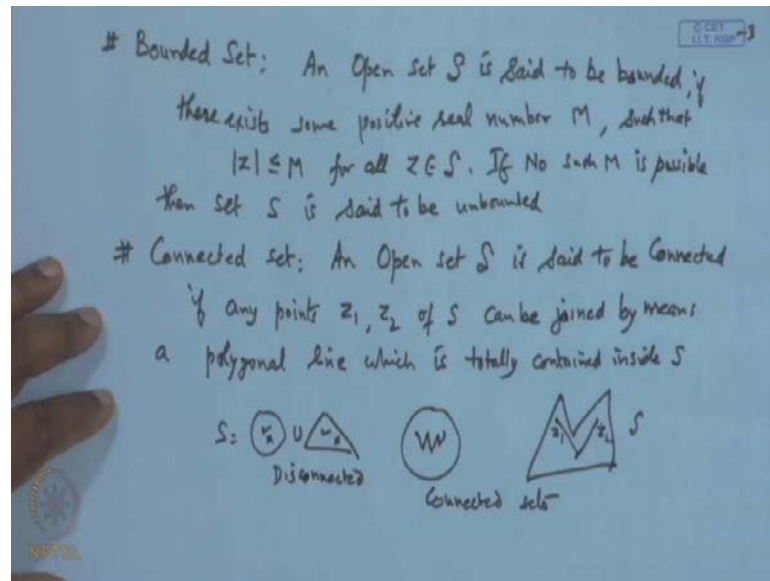 © CET
I.I.T. KGP -3
# Bounded Set: An Open set S is said to be bounded, if
there exists some positive real number M, such that
|z| ≤ M for all z ∈ S. If No such M is possible
then set S is said to be unbounded
# Connected set: An Open set S is said to be Connected
if any points z₁, z₂ of S can be joined by means
a polygonal line which is totally contained inside S
S: U z₁ z₂ S
Disconnected
Connected sets
NPTEL